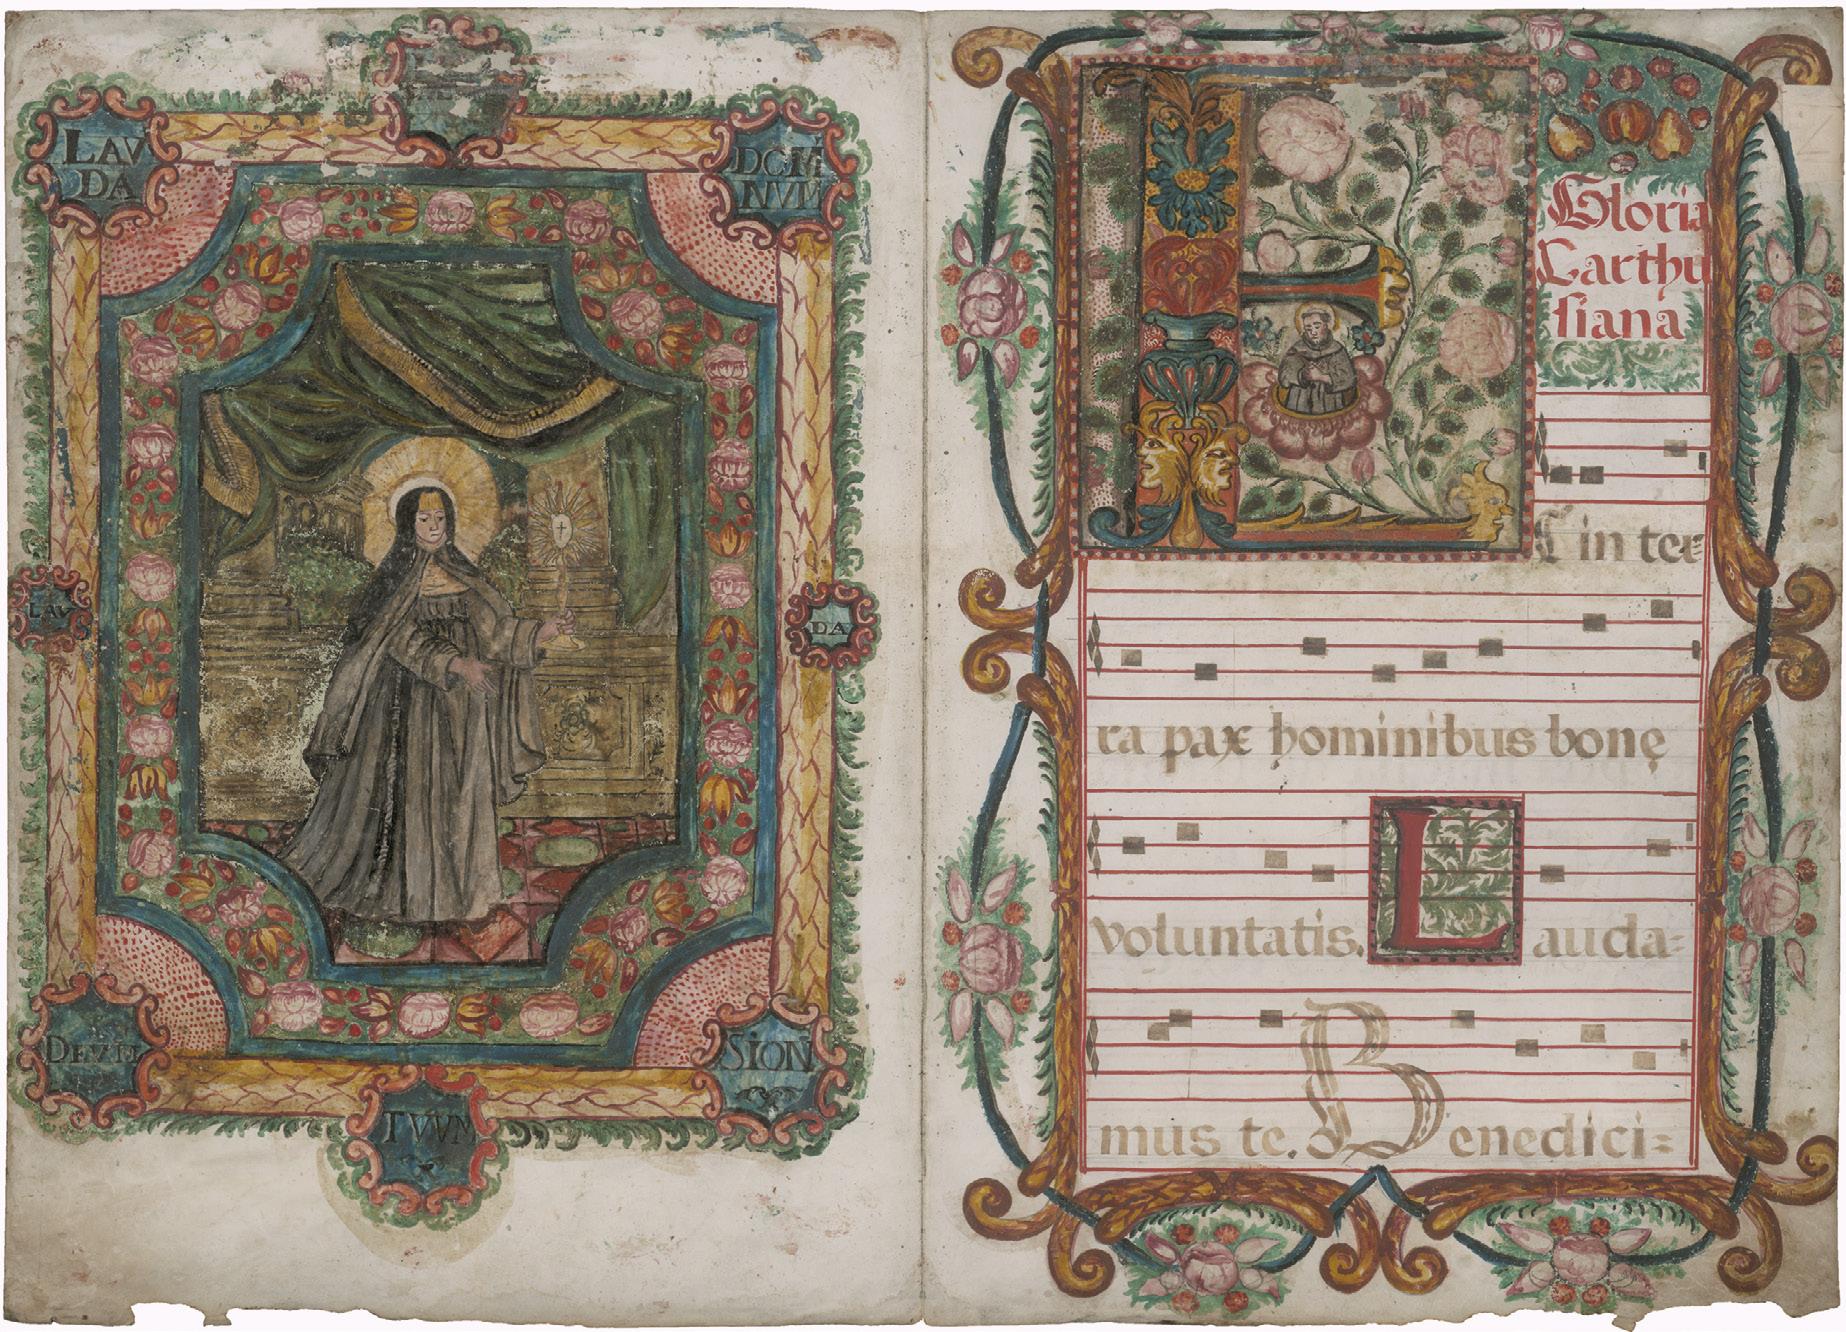 LAV
DA
DOMI
NVM
LAV
DA
DEVM
SION
TVVM
Gloria
Carthu
siana
Et in ter=
ra pax hominibus bonę
voluntatis. Lauda=
mus te. Benedici=